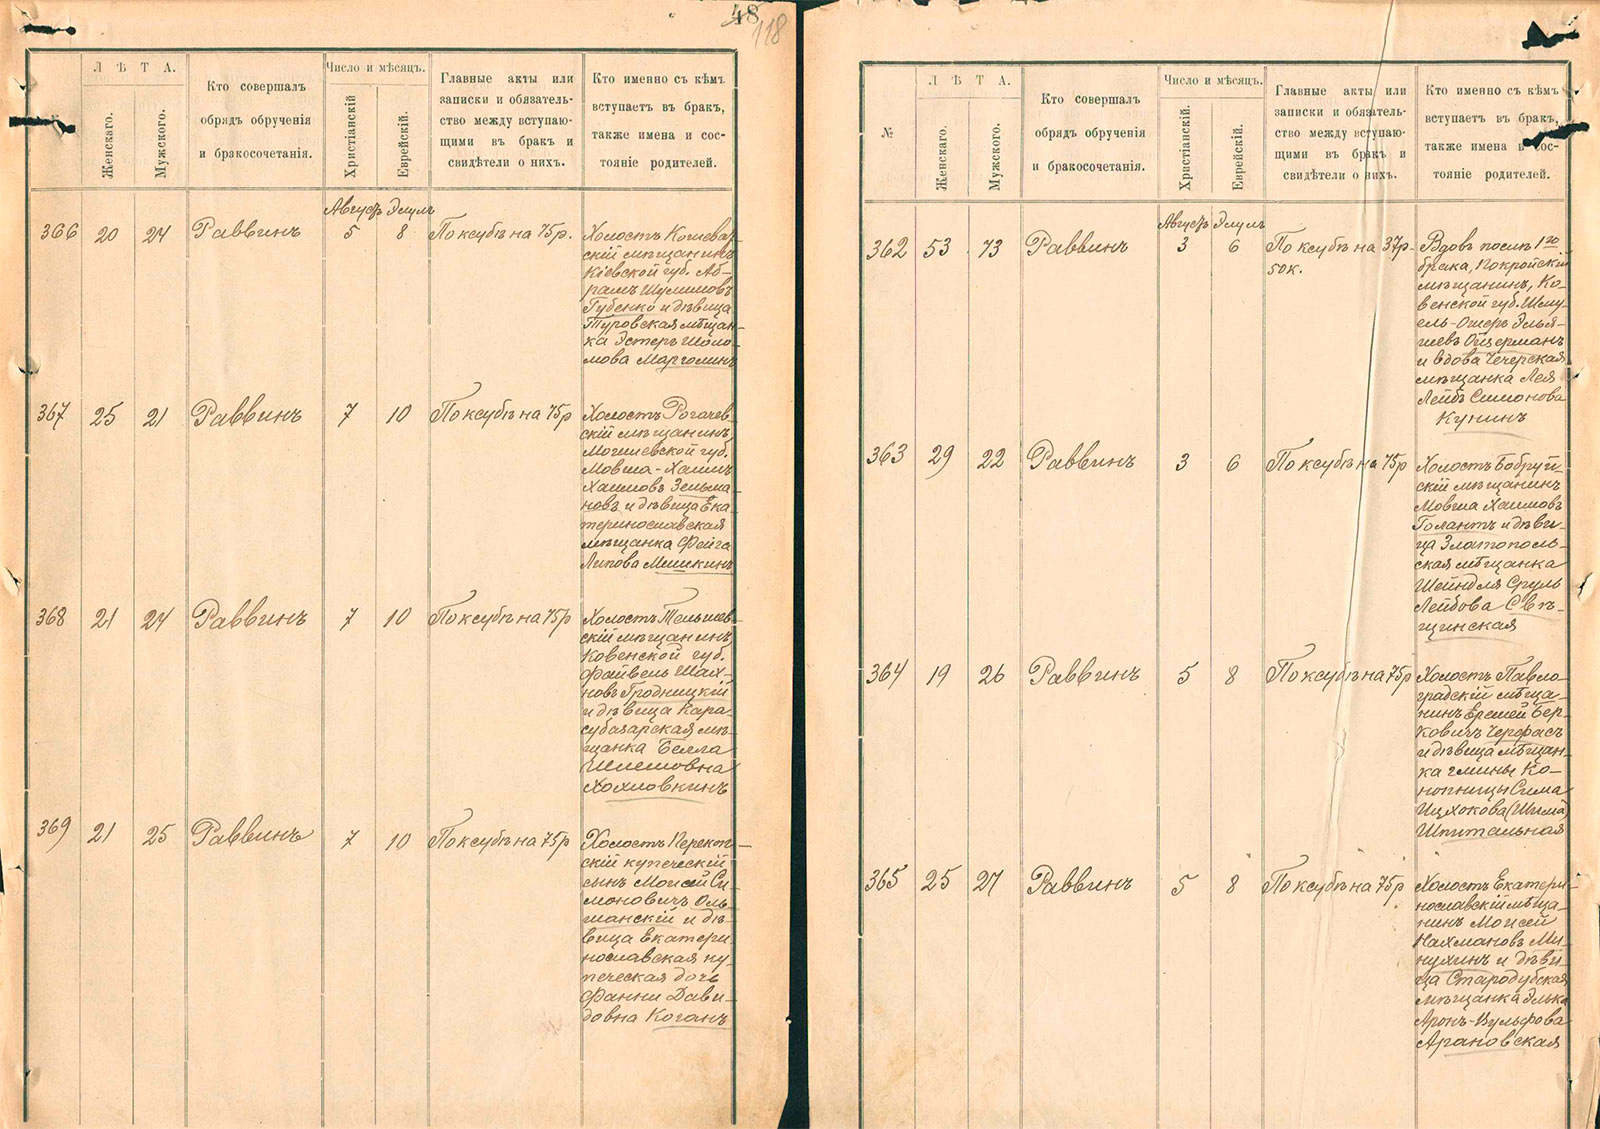 48
118
Л Ѣ Т А.
Женскаго.
Мужского.
Кто совершалъ
обрядъ обрученія
и бракосочетанія.
Число и мѣсяцъ.
Христіанскій
Еврейскій.
Главные акты или
записки и обязатель-
ство между вступаю-
щими въ бракъ и
свидѣтели о нихъ.
Кто именно съ кѣмъ
вступаетъ въ бракъ,
также имена и сос-
тояніе родителей.
Августъ Элулъ
366 20 24 Раввинъ 5 8 По ксубѣ на 75р.
Холостъ Кошева-
скій мѣщанинъ
Кіевской губ. Аб-
рамъ Шулимовъ
Губенко и дѣвица
Туровская мѣщан-
ка Эстеръ Шоло-
мова Марголинъ
367 25 21 Раввинъ 7 10 По ксубѣ на 75р
Холостъ Рогачев-
скій мѣщанинъ,
Могилевской губ.
Мовша-Хаимъ
Хаимовъ Зельма-
новъ и дѣвица Ека-
теринославская
мѣщанка Фейга
Липова Мишкинъ
368 21 24 Раввинъ 7 10 По ксубѣ на 75р
Холостъ Тельшев-
скій мѣщанинъ,
Ковенской губ.
Файвель Шах-
новъ Гродницкій
и дѣвица Кара-
субазарская мѣ-
щанка Белла
Шлемовна
Хохловкинъ
369 21 25 Раввинъ 7 10 По ксубѣ на 75р
Холостъ Перекоп-
скій купеческій
сынъ Моисей Си-
моновичъ Оль-
шанскій и дѣ-
вица Екатери-
нославская ку-
печеская дочь
Фанни Дави-
довна Коганъ
№
Л Ѣ Т А.
Женскаго.
Мужского.
Кто совершалъ
обрядъ обрученія
и бракосочетанія.
Число и мѣсяцъ.
Христіанскій.
Еврейскій.
Главные акты или
записки и обязатель-
ство между вступаю-
щими въ бракъ и
свидѣтели о нихъ.
Кто именно съ кѣмъ
вступаетъ въ бракъ,
также имена и сос-
тояніе родителей.
Августъ Элулъ
362 53 73 Раввинъ 3 6 По ксубѣ на 37р.
50к.
Вдовъ послѣ 1го
брака, Покройскій
мѣщанинъ, Ко-
венской губ. Шму-
ель-Ошеръ Элья-
шевъ Ойзерманъ
и вдова Чечерская
мѣщанка Лея
Лейбъ Симонова
Кунинъ
363 29 22 Раввинъ 3 6 По ксубѣ на 75р
Холостъ Бобруй-
скій мѣщанинъ
Мовша Хаимовъ
Голантъ и дѣви-
ца Златополь-
ская мѣщанка
Шейндля Сруль
Лейбова Свѣ-
щинская
364 19 26 Раввинъ 5 8 По ксубѣ на 75р
Холостъ Павло-
градскій мѣща-
нинъ Ерсмей Бер-
ковичъ Черфасъ
и дѣвица мѣщан-
ка гмины Ко-
нопницы Сима
Ицхокова (Шлема)
Шпитальная
365 25 27 Раввинъ 5 8 По ксубѣ на 75р
Холостъ Екатери-
нославскій мѣща-
нинъ Моисей
Нахмановъ Ми-
нухинъ и дѣви-
ца Стародубская
мѣщанка Элька
Аронъ-Вульфова
Арановская